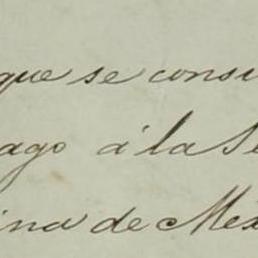 que se consi
ago á la Se
ina de Méx